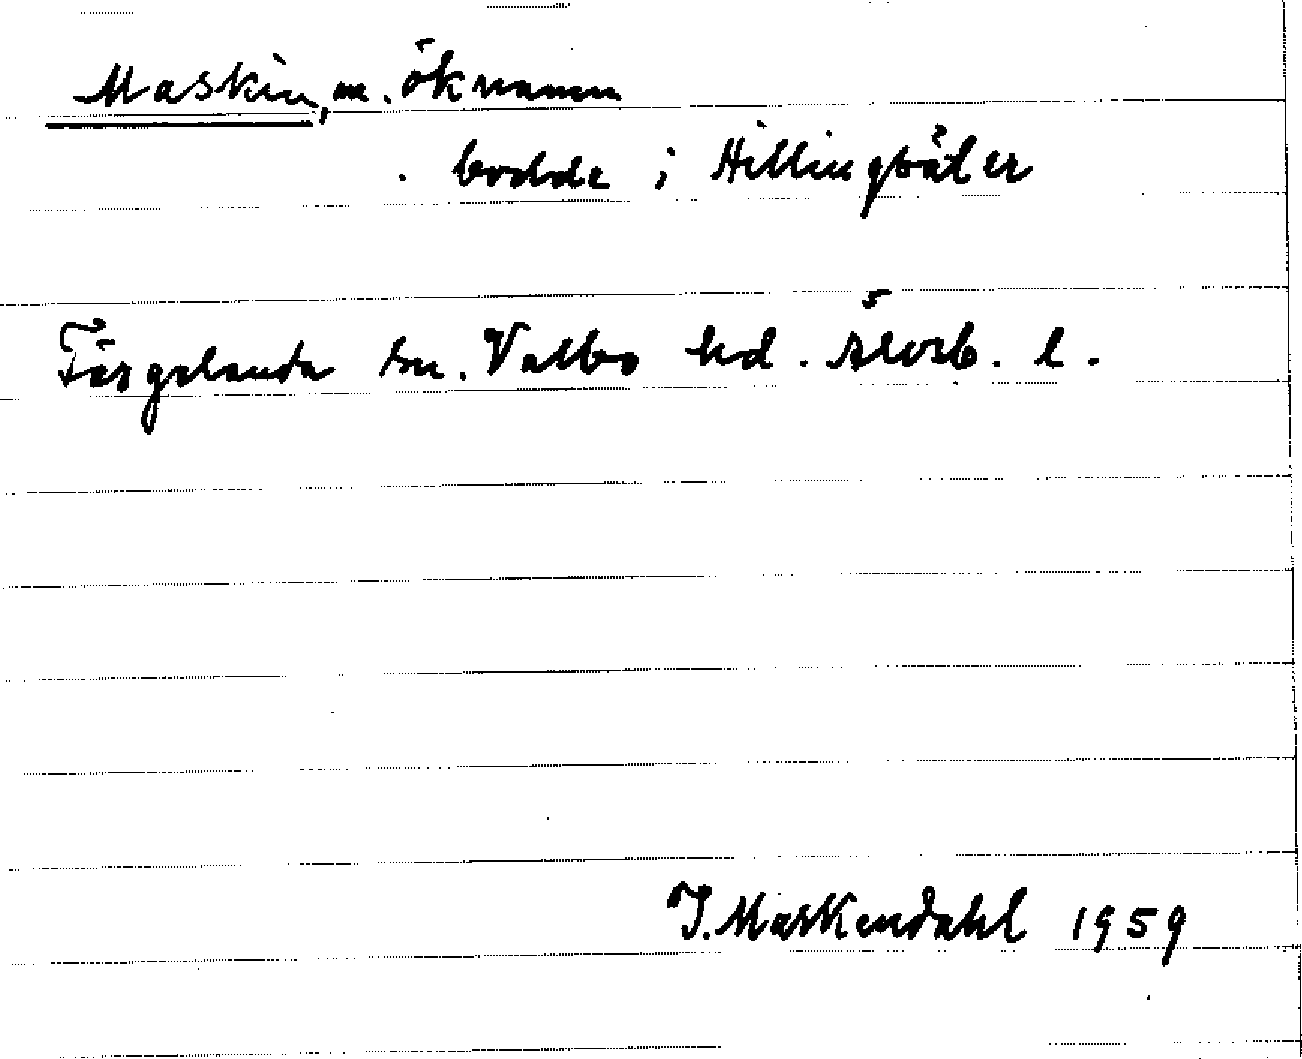 Maskin, m. öknamn
. bodde i Hillingsäter
Färgelanda sn. Valbo hd. Älvsb. l.
I. Maskendahl 1959